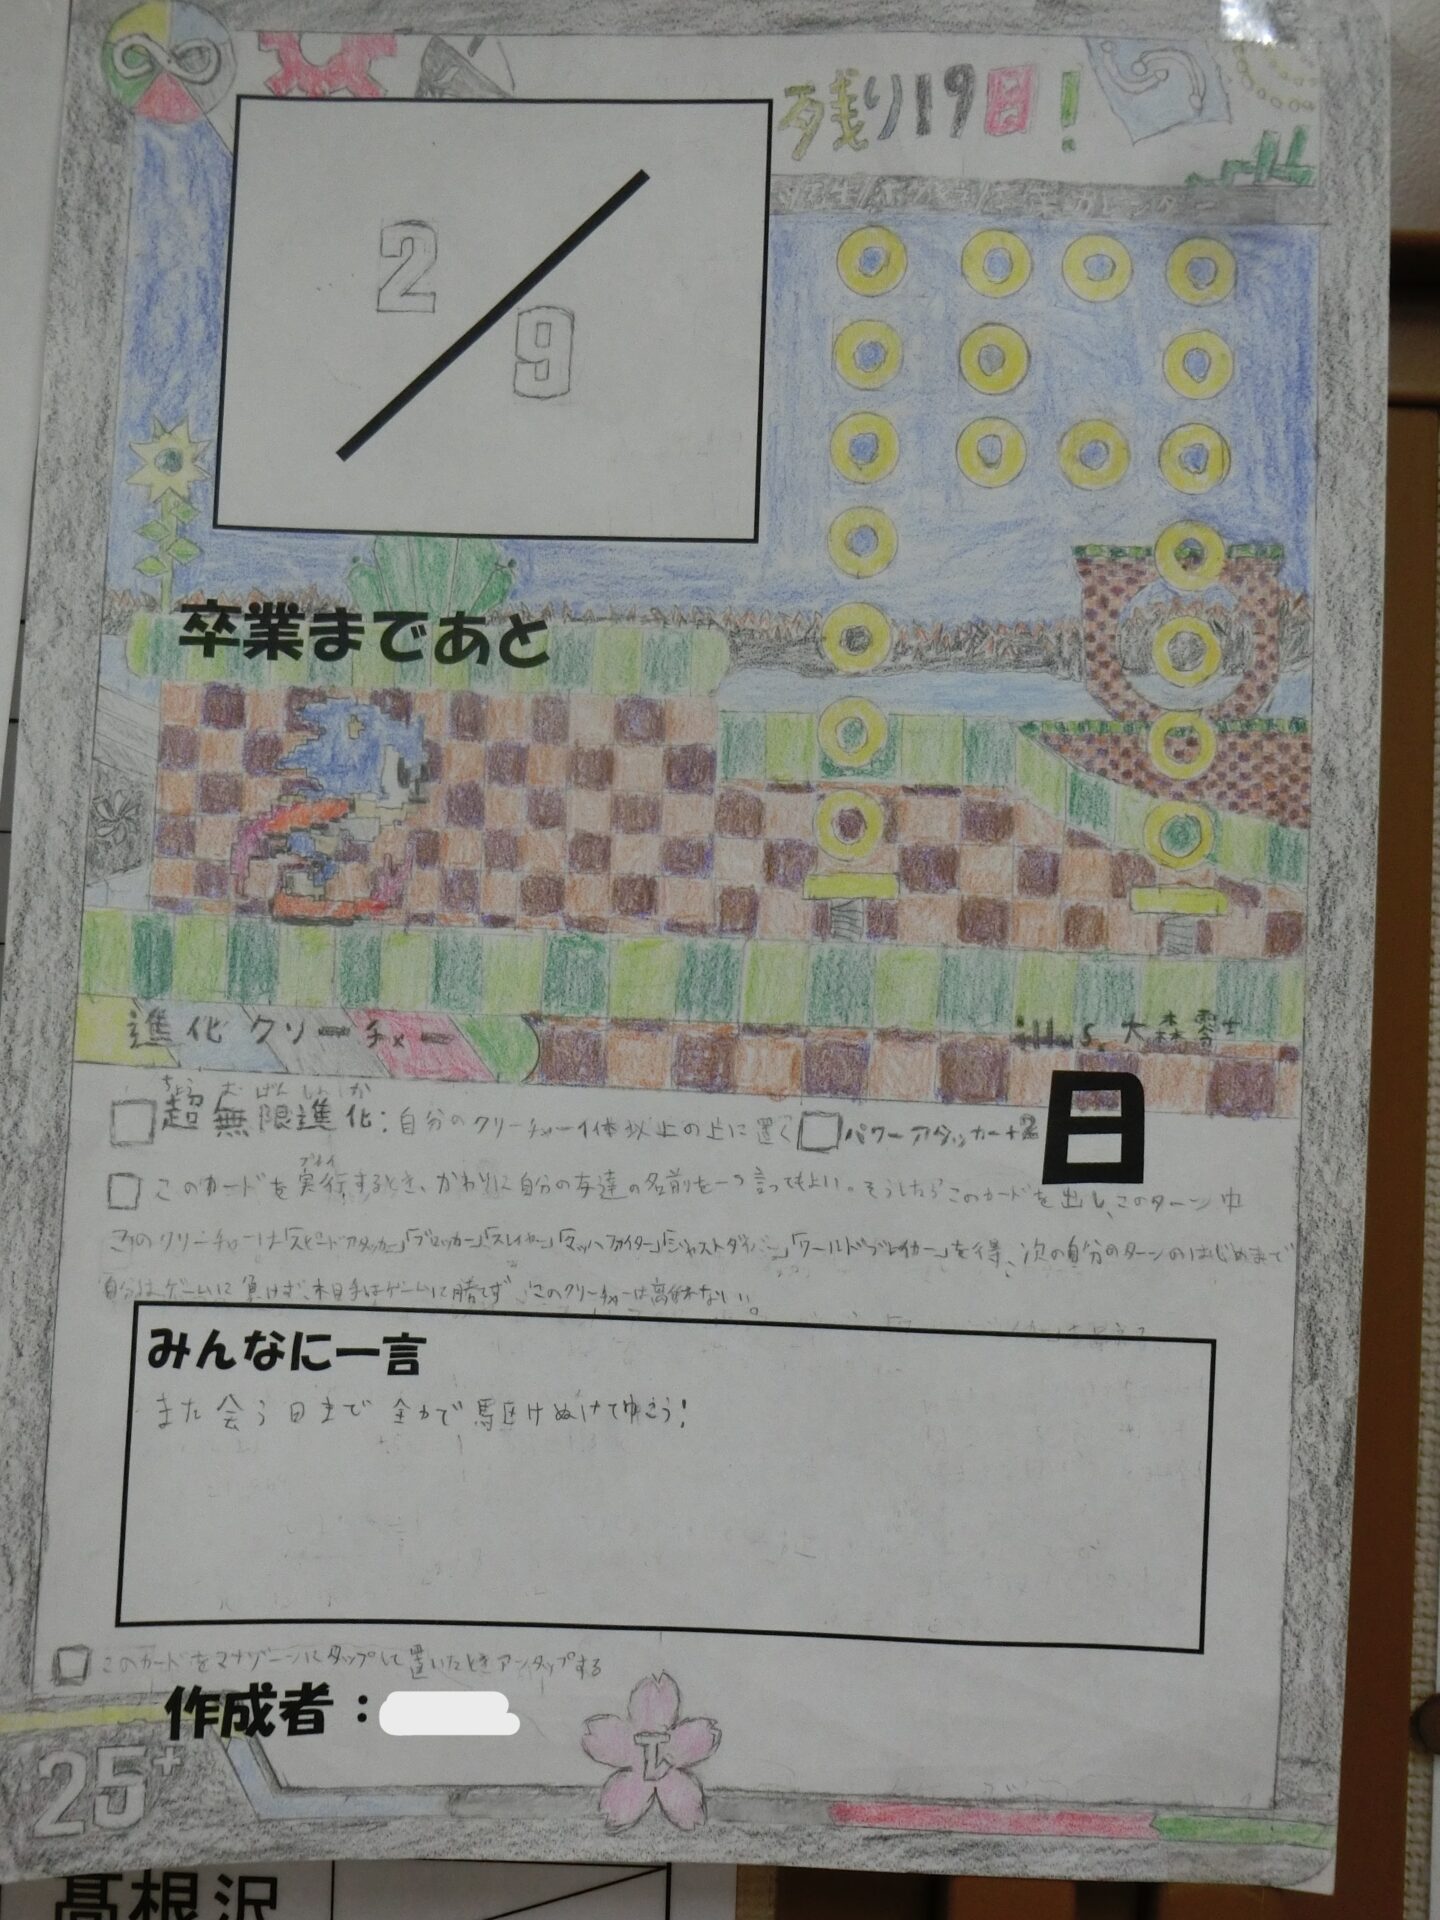 残り19日！
卒業カレンダー
2/9
卒業まであと
進化クリーチャー
illus. 大森
ちょう むげんしんか
超無限進化：自分のクリーチャー1体以上の上に置く パワーアタッカー+
プレイ
このカードを実行するとき、かわりに自分の友達の名前を一つ言ってもよい。そうしたらこのカードを出し、このターン中
このクリーチャーは「スピードアタッカー」「ブロッカー」「スレイヤー」「マッハファイター」「ジャストダイバー」「ワールドブレイカー」を得、次の自分のターンのはじめまで
自分はゲームに負けず、相手はゲームに勝てず、このクリーチャーは離れない。
日
みんなに一言
また会う日まで全力で駆けぬけてゆこう！
このカードをマナゾーンにタップして置いたときアンタップする
作成者：
25+
高根沢